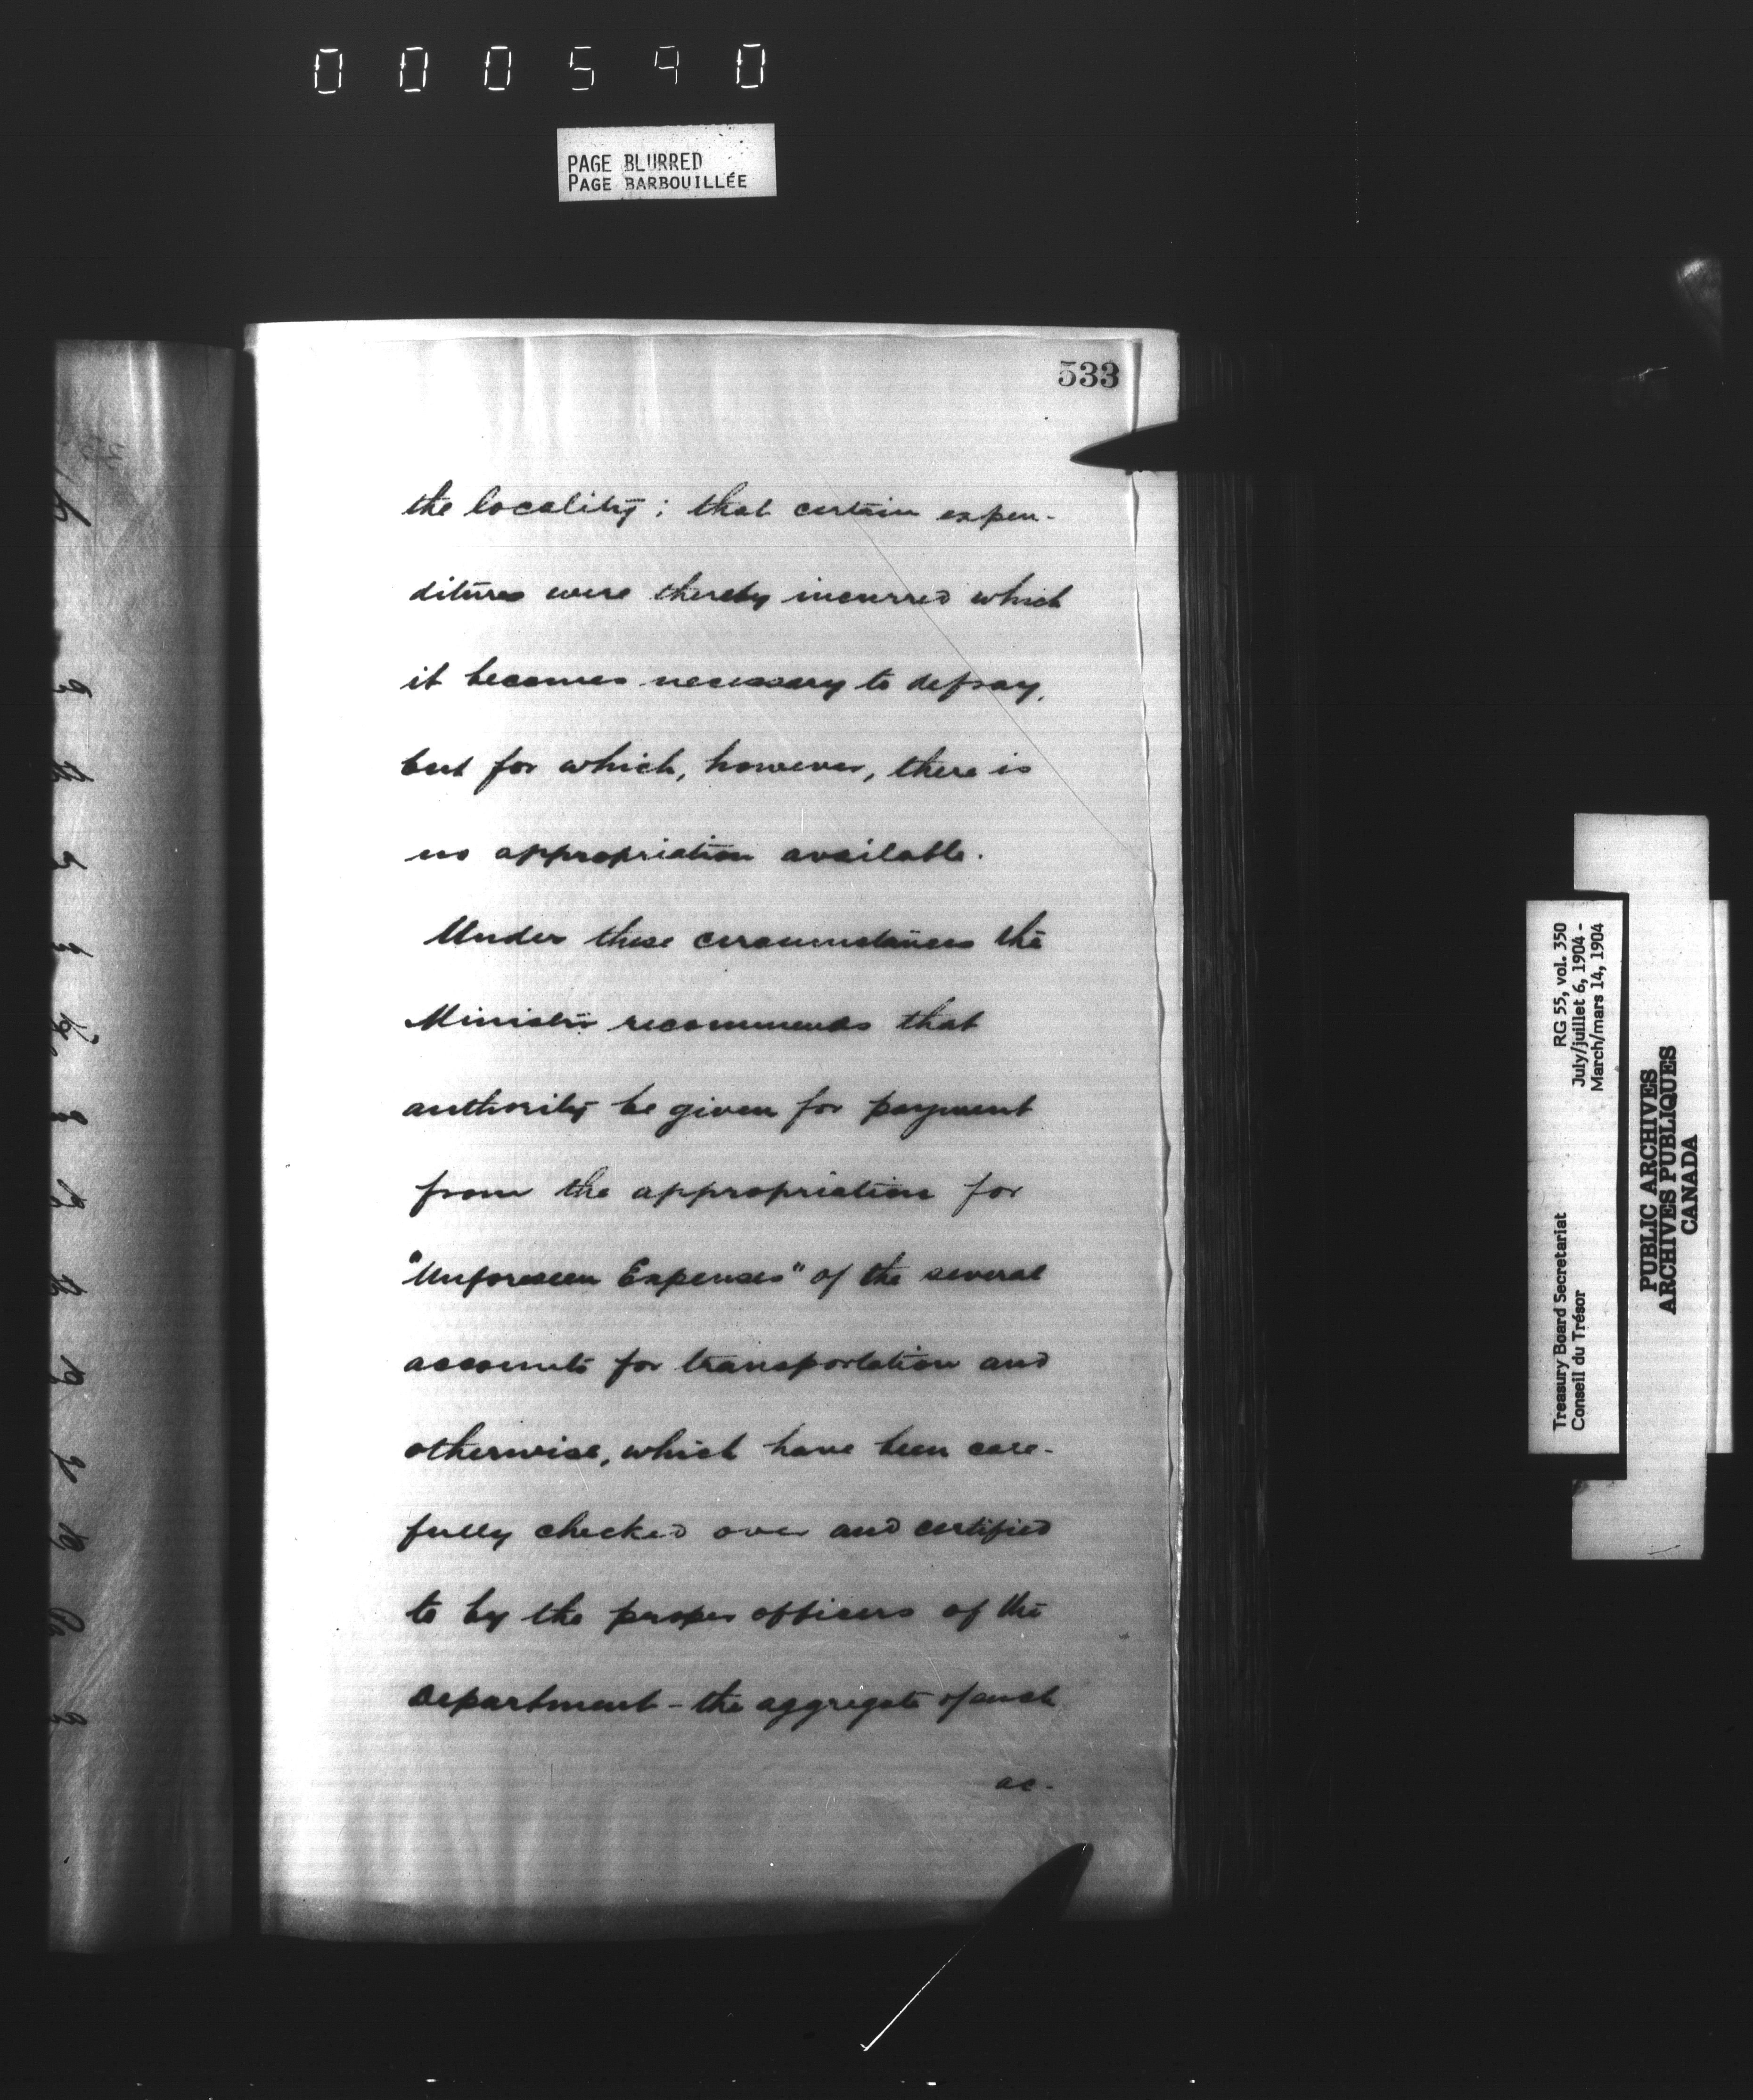 000590
PAGE BLURRED
PAGE BARBOUILLÉE
533
the locality; that certain expen-
ditures were thereby incurred which
it becomes necessary to defray,
but for which, however, there is
no appropriation available.
Under these circumstances the
Minister recommends that
authority be given for payment
from the appropriation for
"Unforeseen Expenses" of the several
accounts for transportation and
otherwise, which have been care-
fully checked over and certified
to by the proper officers of the
Department - the aggregate of such
ac-
Treasury Board Secretariat RG 55, vol. 350
Conseil du Trésor July/juillet 6, 1904 -
March/mars 14, 1904
PUBLIC ARCHIVES
ARCHIVES PUBLIQUES
CANADA